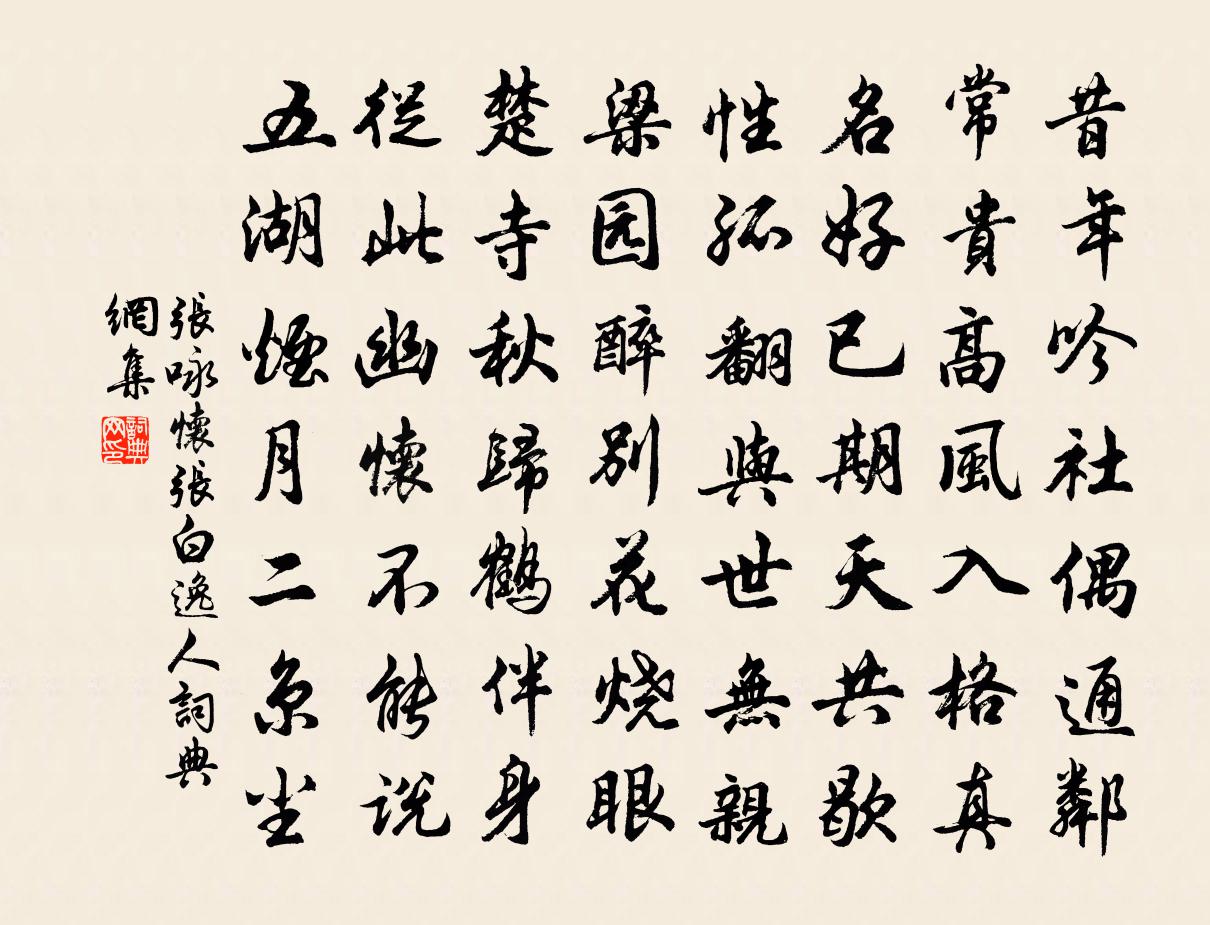 昔年吟社偶通鄰
常貴高風入格真
名好已期天共歇
性孤翻與世無親
梁园醉別花烧眼
楚寺秋歸鹤伴身
從此幽懷不能说
五湖煙月二京尘
張咏懷張白逸人詞典
網集
詞典
网印